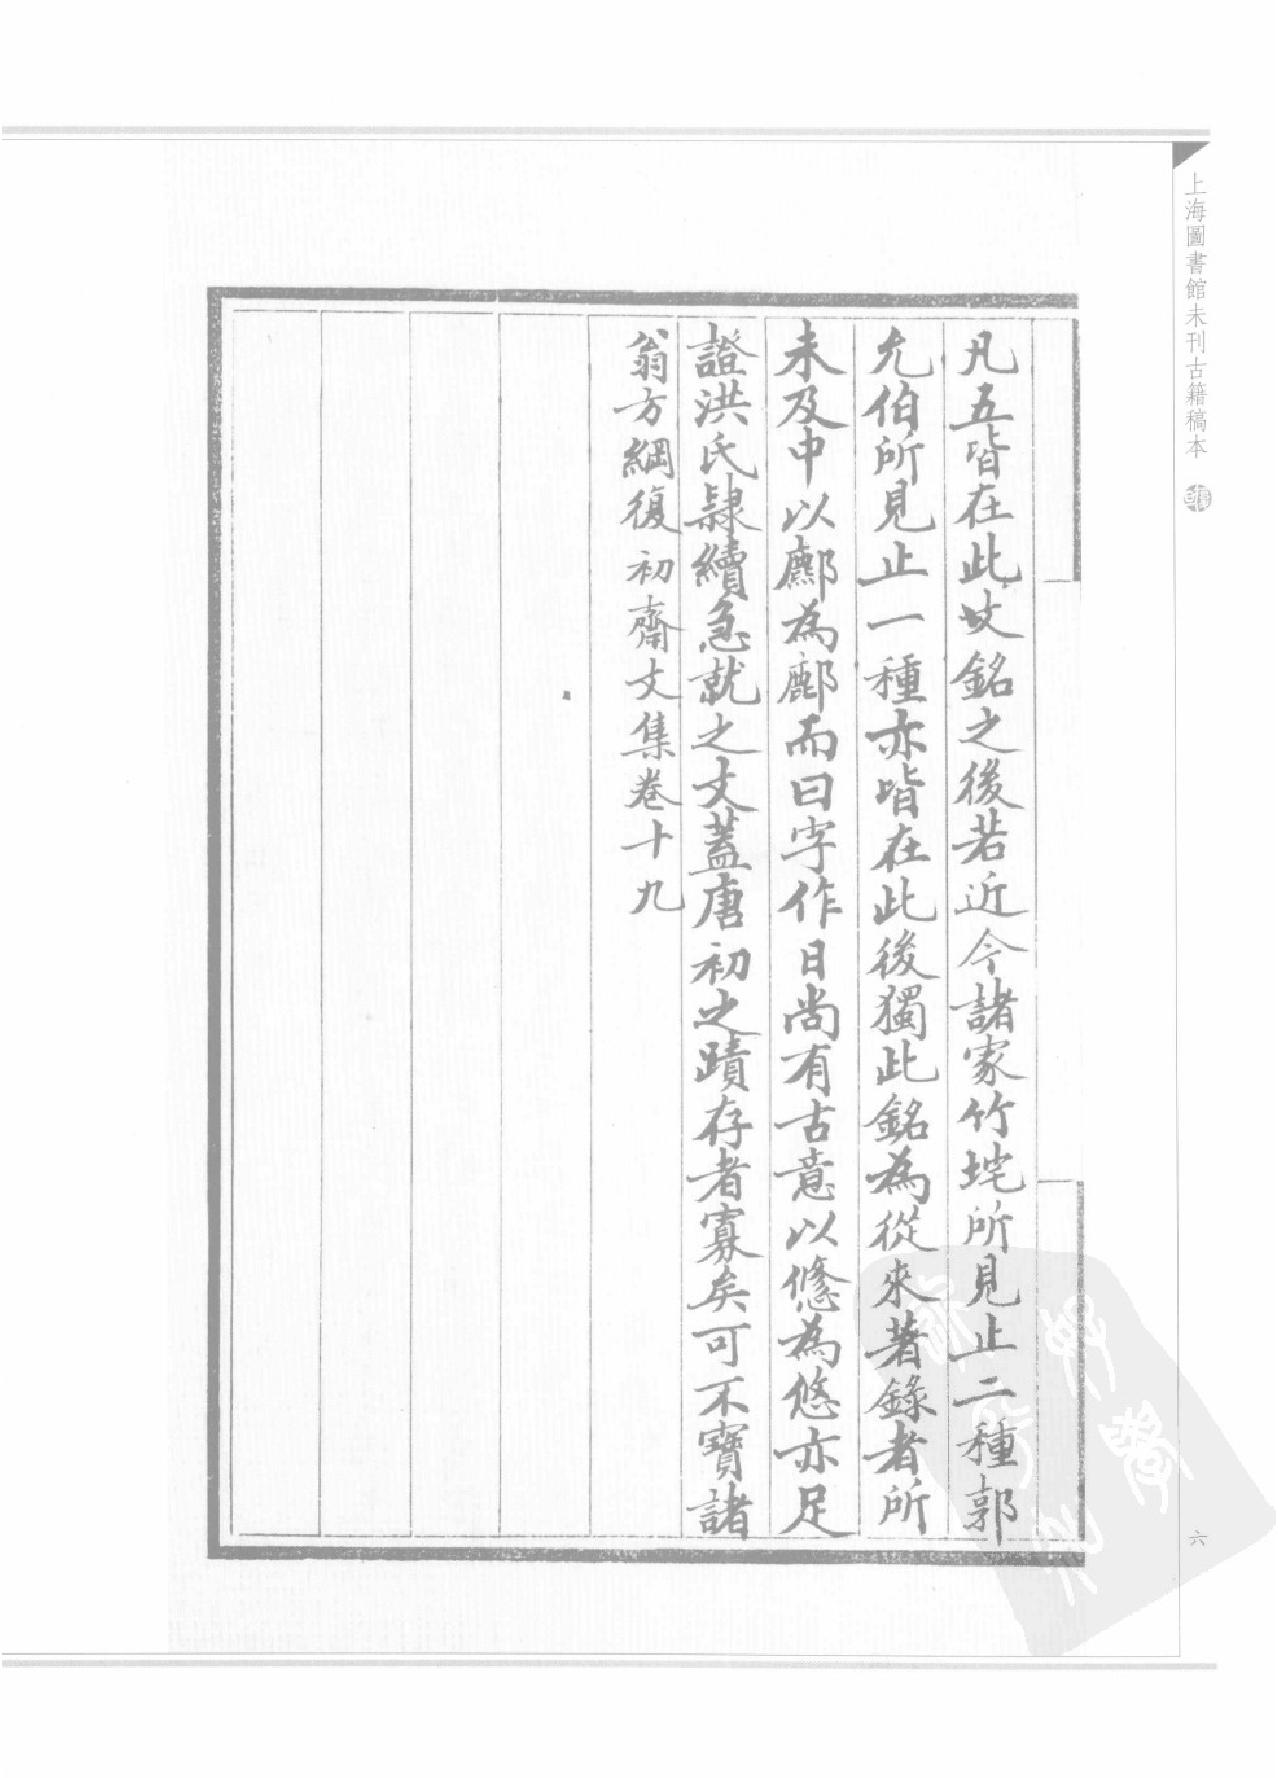 上海圖書館未刊古籍稿本
凡五皆在此文銘之後若近今諸家竹垞所見止二種郭
允伯所見止一種亦皆在此後獨此銘為從來著錄者所
未及中以鄜為鄜而曰字作日尚有古意以懲為悠亦足
證洪氏隸續急就之文蓋唐初之蹟存者寡矣可不寶諸
翁方綱復初齋文集卷十九
六